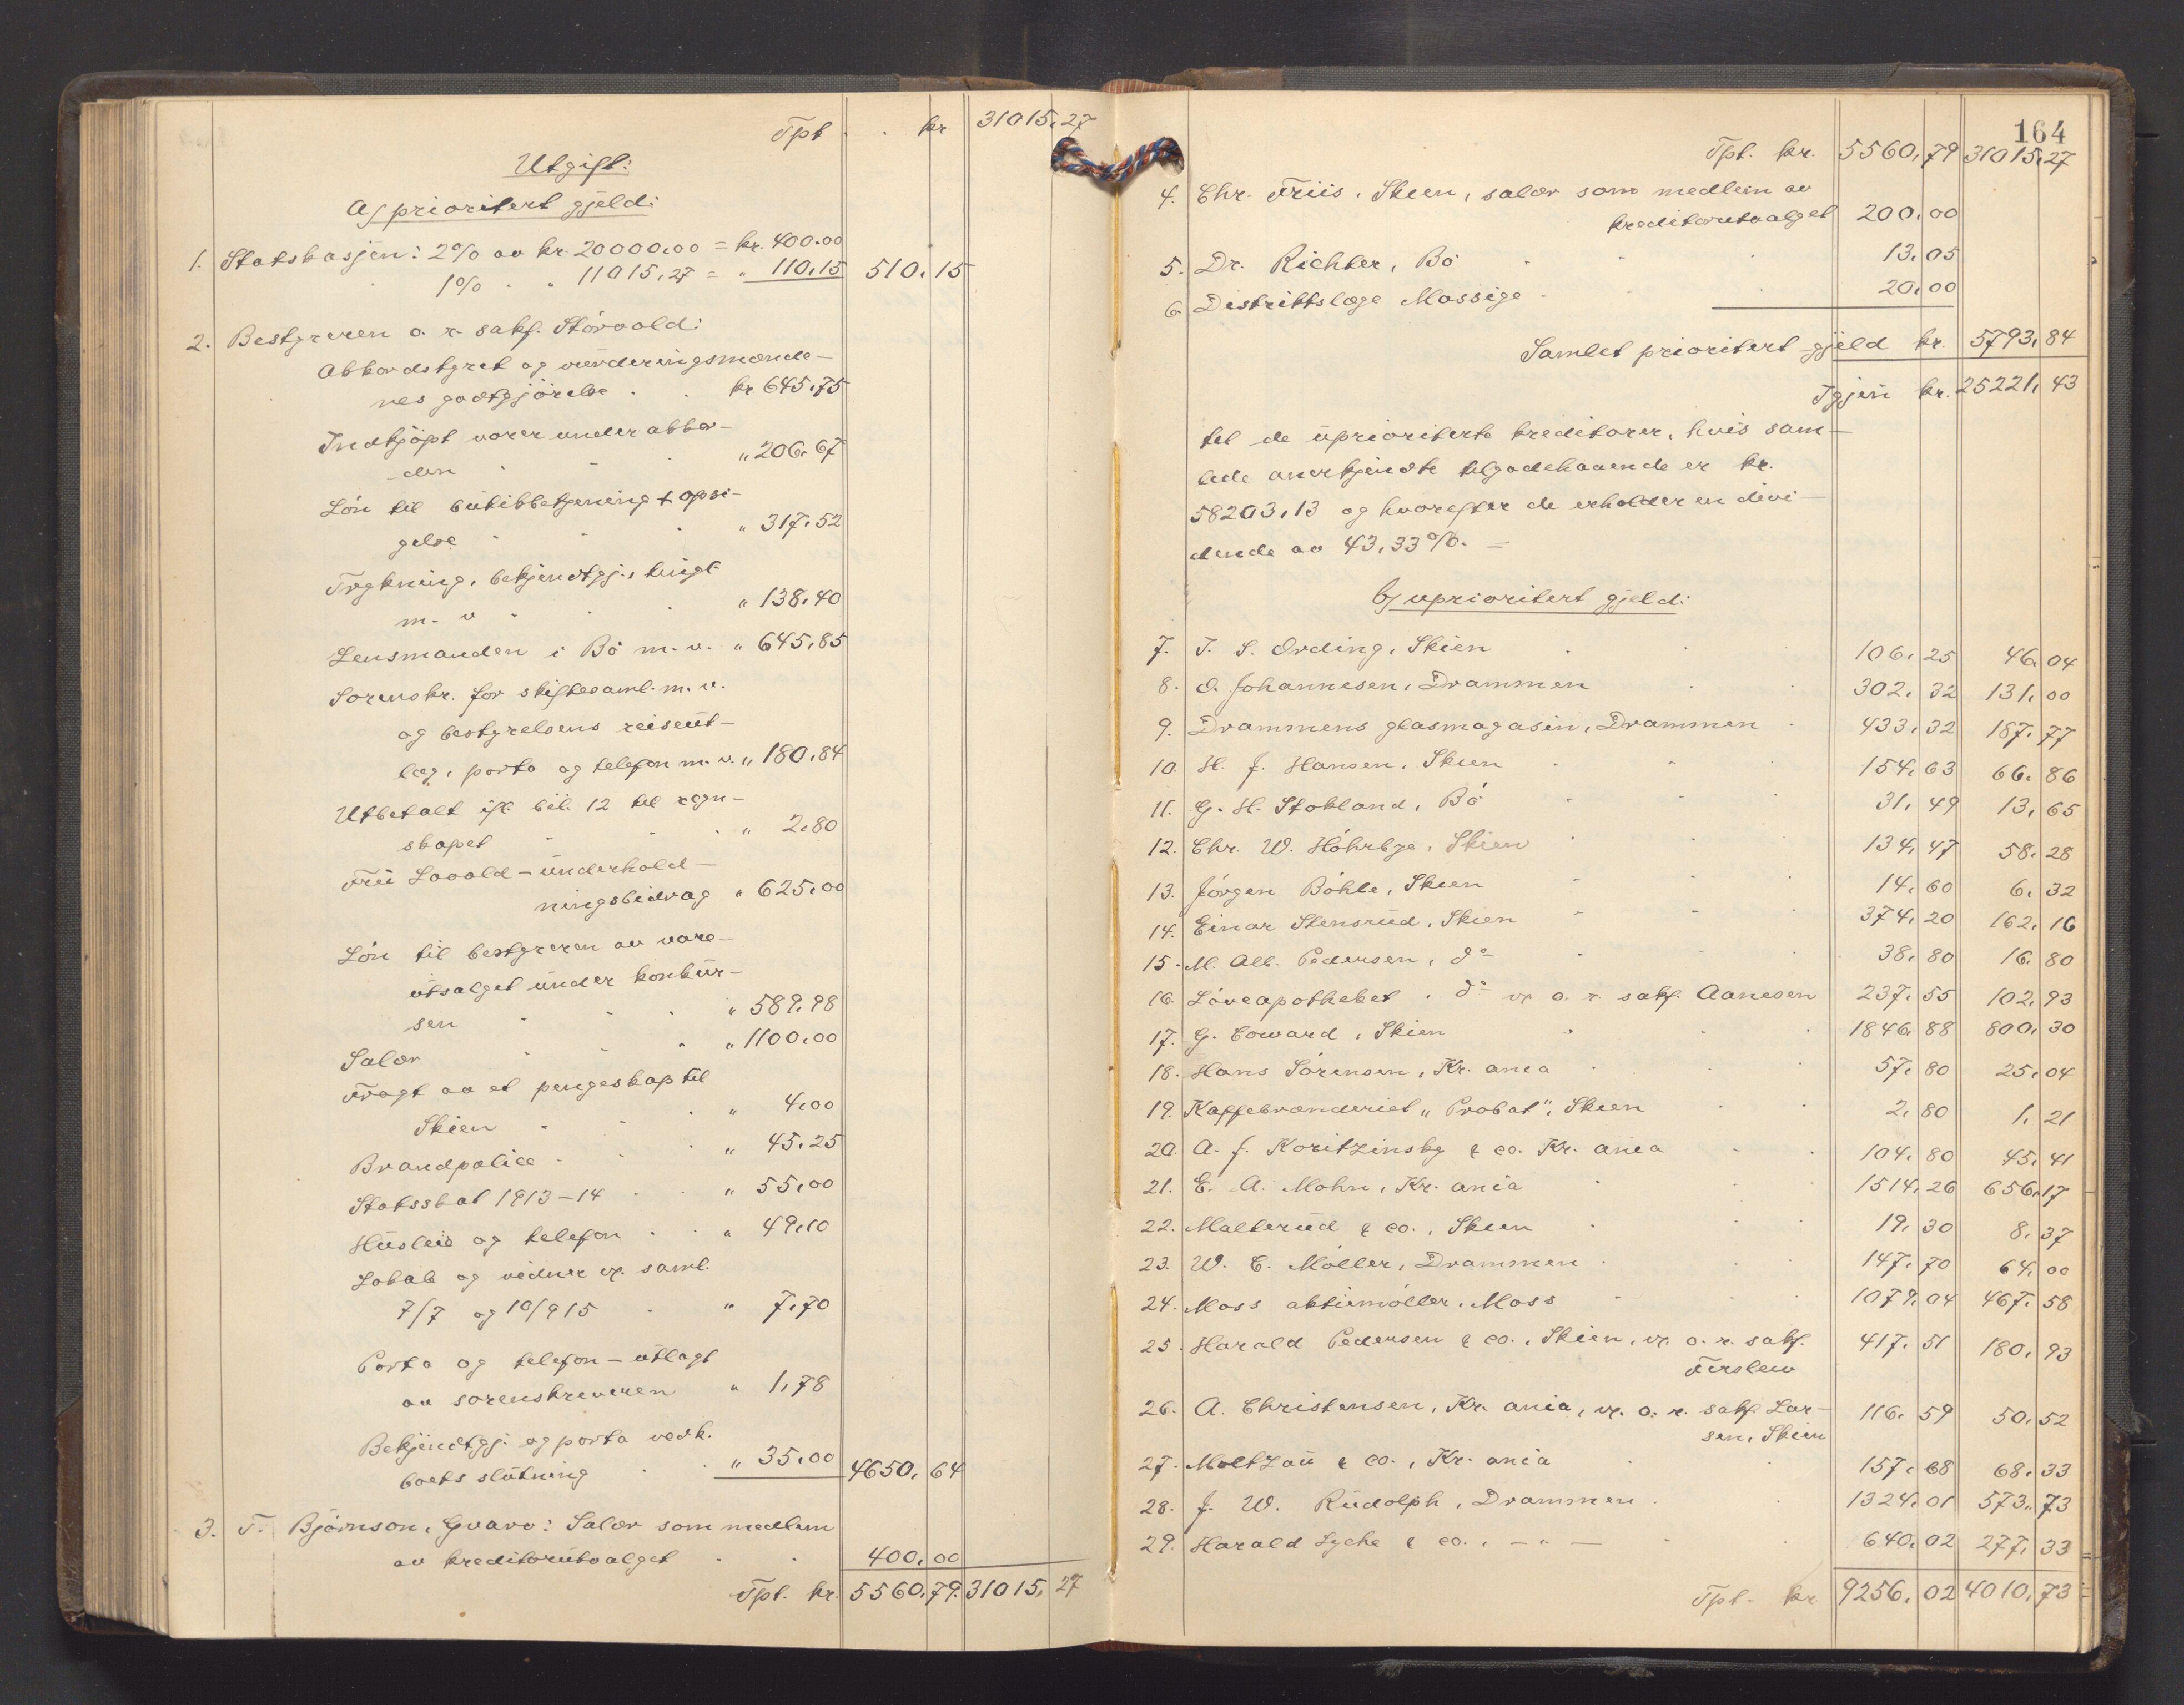 Tpt . . kr 31015,27
Utgift:
a/ prioritert gjeld:
1. Statskassen: 2% av kr. 20000.00 = kr. 400.00
1% " " 11015,27 = " 110,15 510,15
2. Bestyreren o. r. sakf. Störvold:
Akkordstyret og vurderingsmænde-
nes godtgjörelse . . kr 645,75
Indkjöpt varer under akkor-
den " 206.67
Lön til butikbetjening + opsi-
gelse " 317,52
Trykning, bekjendtgj., tingl.
m. v " 138,40
Lensmanden i Bö m. v. " 645,85
Sorenskr. for skiftesaml. m. v.
og bestyrelsens reiseut-
læg, porto og telefon m. v. " 180,84
Utbetalt ifl. bil. 12 til regn-
skapet " 2.80
Fru Lovald - underhold-
ningsbidrag " 625,00
Lön til bestyreren av vare-
utsalget under konkur-
sen " 589,98
Salær " 1100,00
Fragt av et pengeskap til
Skien " 4,00
Brandpolice " 45,25
Statsskat 1913-14 . . " 55,00
Husleie og telefon . . " 49,10
Lokale og vidner vp. saml.
7/7 og 10/9 15 " 7,70
Porto og telefon - utlagt
av sorenskriveren " 1,78
Bekjendtgj. og porto vedk.
boets slutning " 35,00 4650,64
3. T. Björnson, Gvarv: Salær som medlem
av kreditorutvalget . . 400,00
Tpt. kr. 5560,79. 31015,27
164
Tpt. kr. 5560,79 31015,27
4. Chr. Friis, Skien, salær som medlem av
kreditorutvalget 200,00
5. Dr. Richter, Bö 13,05
6. Distriktslæge Mossige 20,00
Samlet prioritert gjeld kr. 5793,84
Igjen kr. 25221,43
til de uprioriterte kreditorer, hvis sam-
lede anerkjendte tilgodehavende er kr.
58203,13 og hvorefter de erholder en divi-
dende av 43,33%. -
b/ uprioritert gjeld:
7. T. S. Ording, Skien 106,25 46,04
8. O. Johannesen, Drammen 302,32 131,00
9. Drammens glasmagasin, Drammen 433,32 187,77
10. H. J. Hansen, Skien 154,63 66,86
11. G. H. Stokland, Bö 31,49 13,65
12. Chr. W. Höhrbye, Skien 134,47 58,28
13. Jörgen Böhle, Skien 14,60 6,32
14. Einar Stensrud, Skien 374,20 162,16
15. M. Alb. Pedersen, do 38,80 16,80
16. Löveapotheket, do vp o. r. sakf. Aanesen 237,55 102,93
17. G. Coward, Skien 1846,88 800,30
18. Hans Sörensen, Kr. ania 57,80 25,04
19. Kaffebrænderiet "Probat", Skien 2,80 1,21
20. A. J. Koritzinsky & co. Kr. ania 104,80 45,41
21. E. A. Mohn, Kr. ania 1514,26 656,17
22. Malterud & co., Skien 19,30 8,37
23. W. C. Möller, Drammen 147,70 64,00
24. Moss aktiemöller, Moss 1079,04 467,58
25. Harald Pedersen & co., Skien, vp. o. r. sakf. 417,51 180,93
Ferslew
26. A. Christensen, Kr. ania, vp. o. r. sakf. Lar- 116,59 50,52
sen, Skien
27. Moltzau & co., Kr. ania 157,68 68,33
28. J. W. Rudolph, Drammen 1324,01 573,73
29. Harald Lyche & co., - " - 640,02 277,33
Tpt. kr 9256,02 4010,73